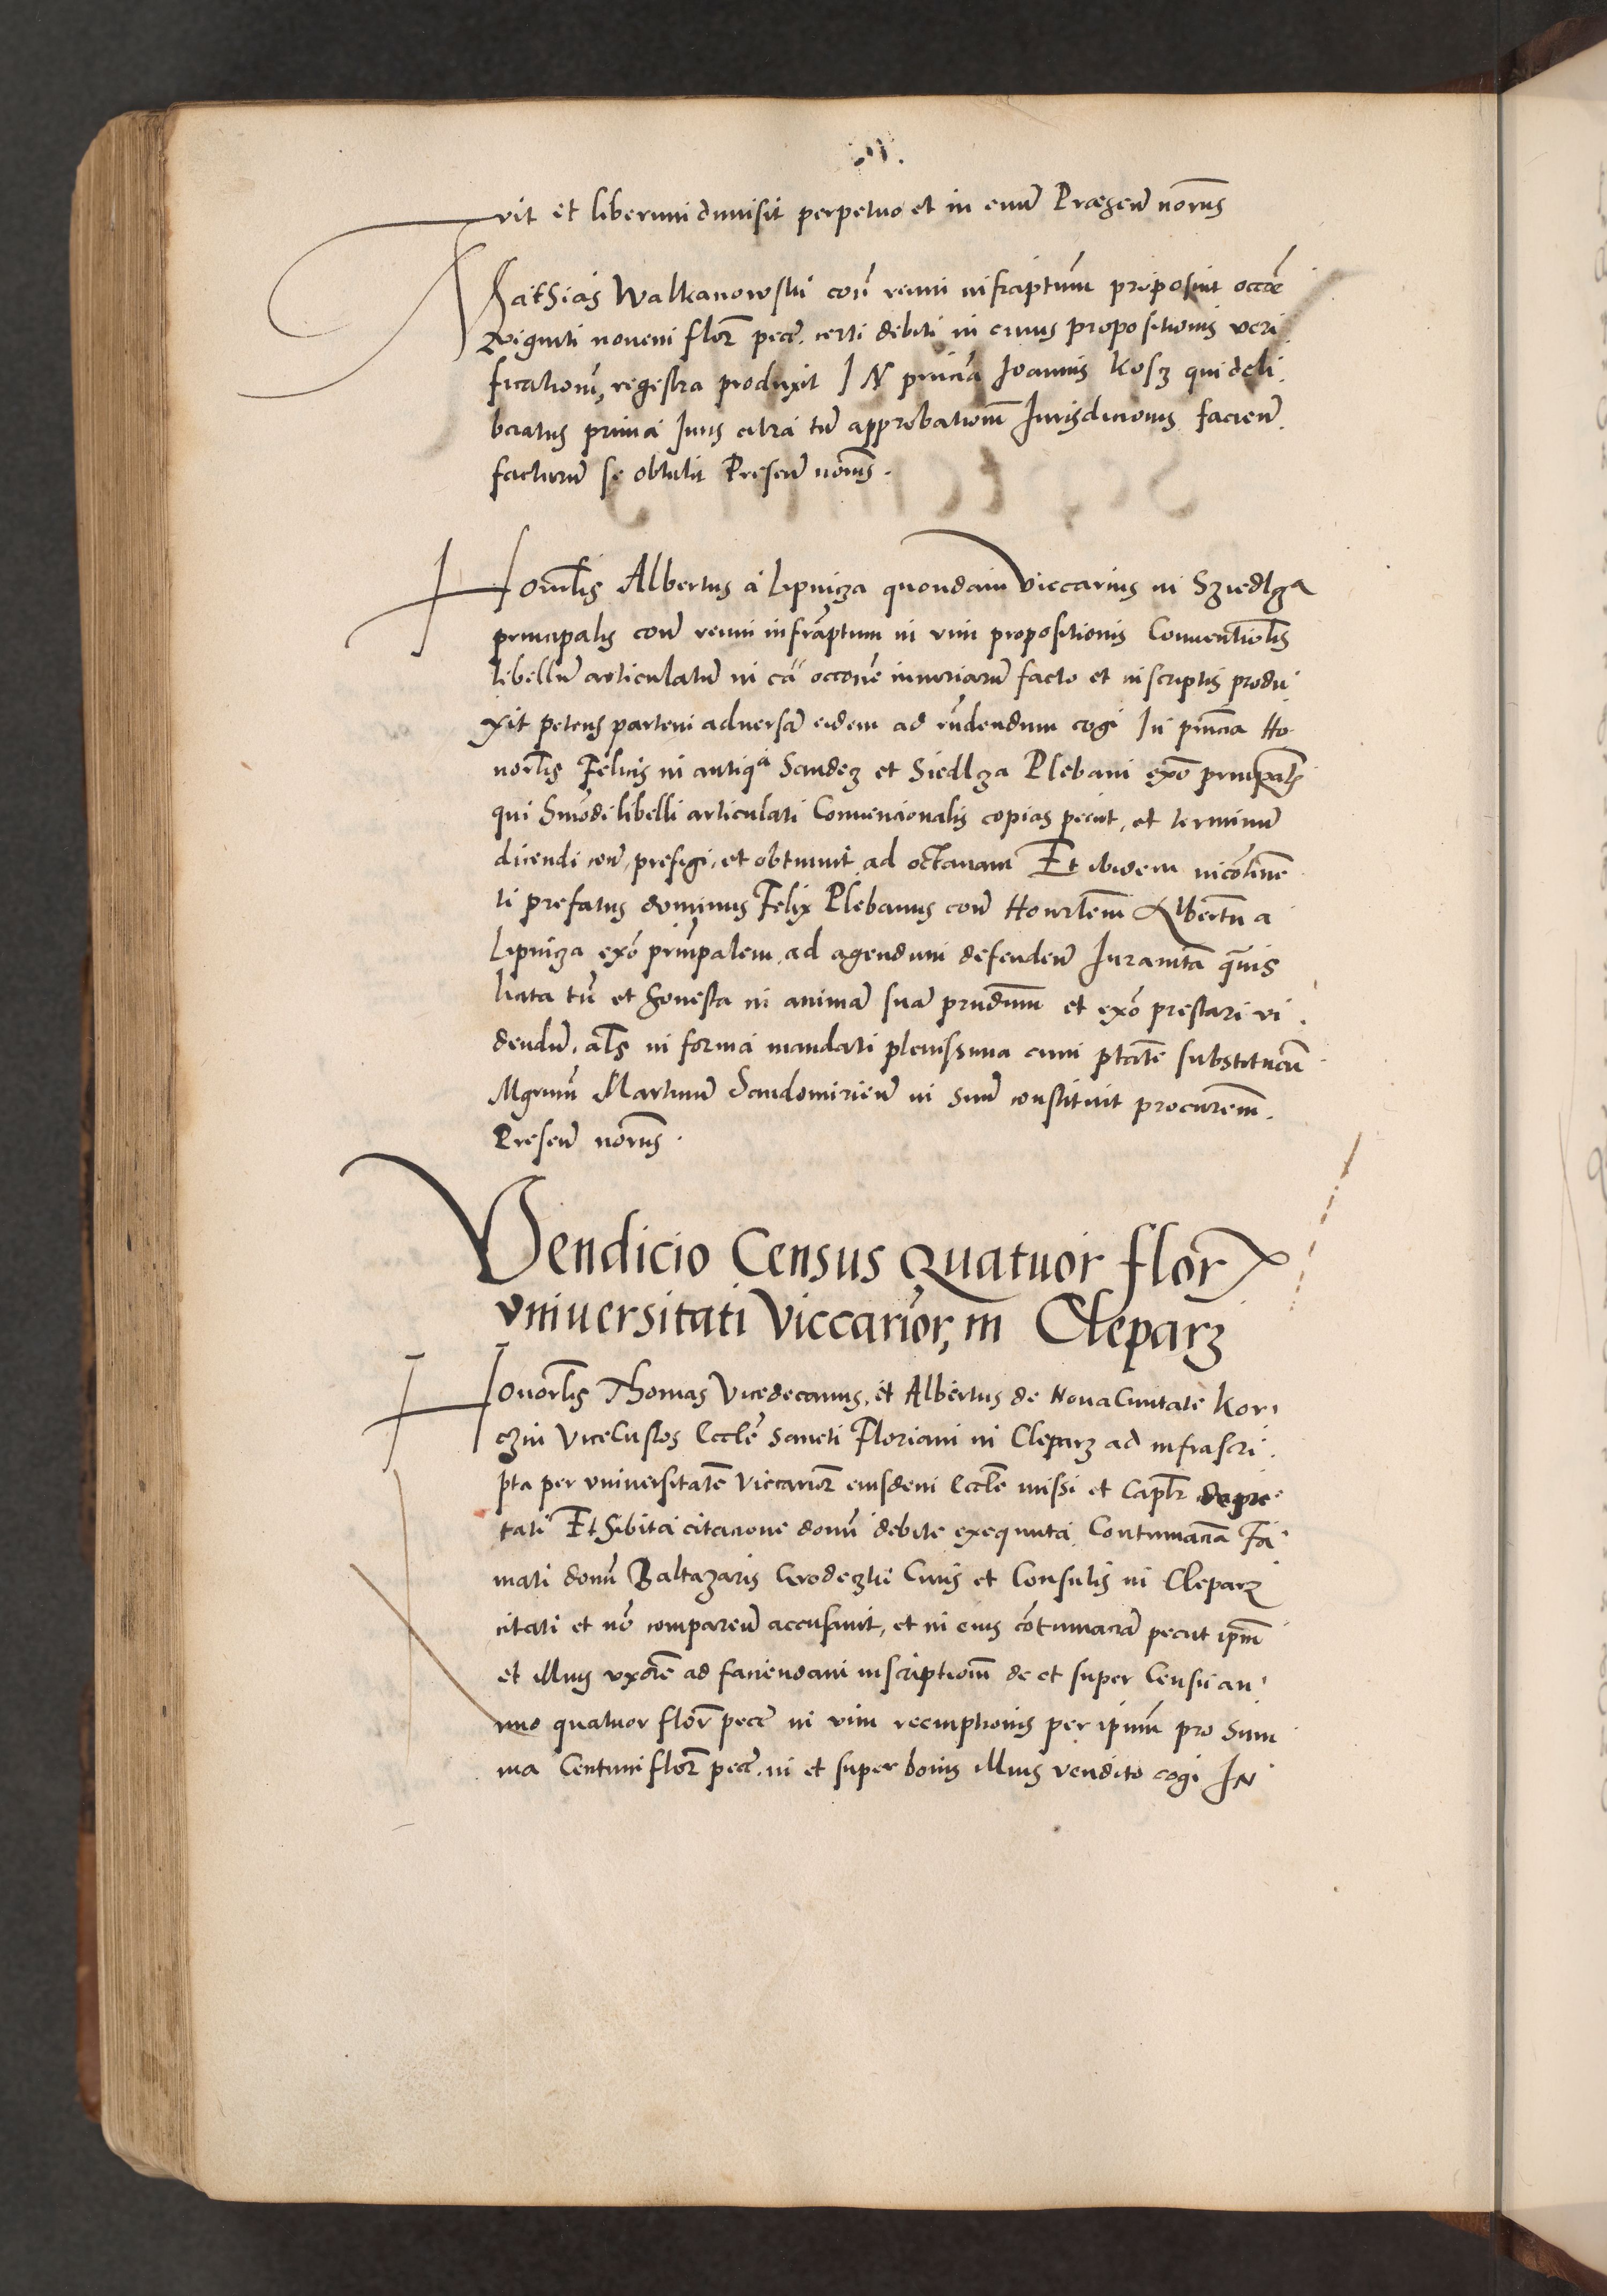 vit et liberum dimisit perpetuo et in euum Præsen̄ norīs
Mathias Walkanowski con̄ reum infrāptum̄ proposuit occōe
viginti novem flor̄ pecc̄. certi debiti in cuius propositionis veri
ficationem̄, regestra produxit IN pn̄cia Ioannis Kosz qui deli
beratus prima Iuris citra tn̄ approbationem̄ Iurisdicionis facien̄
facturū se obtulit Presen̄ norīs.
Honorlis Albertus a Lipnicza quondam Viccarius in Sziedlcza
principalis con̄ reum infrāptum in vim propositionis Conuentiolis
libellū articulatū in cā occone iniuriarū facto et in scriptis produ
xit petens partem adversā eidem ad rn̄dendum cogi In pn̄cia Ho
norlis Felicis in antiqa Sandecz et Siedlcza Plebani exō principalis
qui hmōdi libelli articulati Convencionalis copias peciit, et terminū
dicendi con̄, prefigi, et obtinuit ad octavam Et ibidem incōtinē
ti prefatus dominus Felix Plebanus con̄ Honorlem Albertū a
Lipnicza exō prin̄palem, ad agendum defenden̄ Iuramta quevis
licita tn̄ et honesta in animā suā prestandum et exō prestari vi
dendū. als in forma mandati plenissima cum ptāte substituen̄
Mgrum Martinū Sandomirien̄ in suū constituit procurem̄.
Presen̄ norīs.
Vendicio Census Quatuor flor
vniversitati Viccarior, in Cleparz
Honorlis Thomas Vicedecanus, et Albertus de Nova Civitate Kor
czin ViceCustos Eccle Sancti Floriani in Cleparz ad infrascri
pta per vniversitatē Viccarior̄ eiusdem Eccle missi et Caplr depu
tati Et habita citacione domū debite exequuta Contumaciā Fa
mati domī Baltazaris Civis et Consulis in Cleparz
citati et nō comparen̄ accusavit, et in eius cōtumaciā peciit ipm̄
et illius vxorē ad faciendam inscriptionem̄ de et super Censu an
nuo quatuor flor̄ pecc̄ in vim reemptionis per ipsum̄ pro Sum
ma Centum flor̄ pecc̄. in et super bonis illius vendito cogi IN